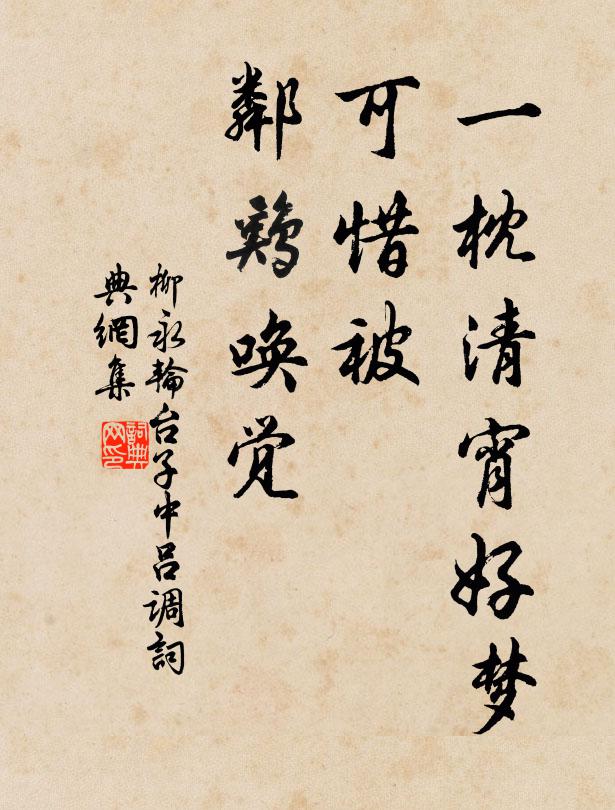 一枕清宵好梦
可惜被
鄰鷄唤觉
柳永輪台子中吕调詞
典網集
詞典
网印